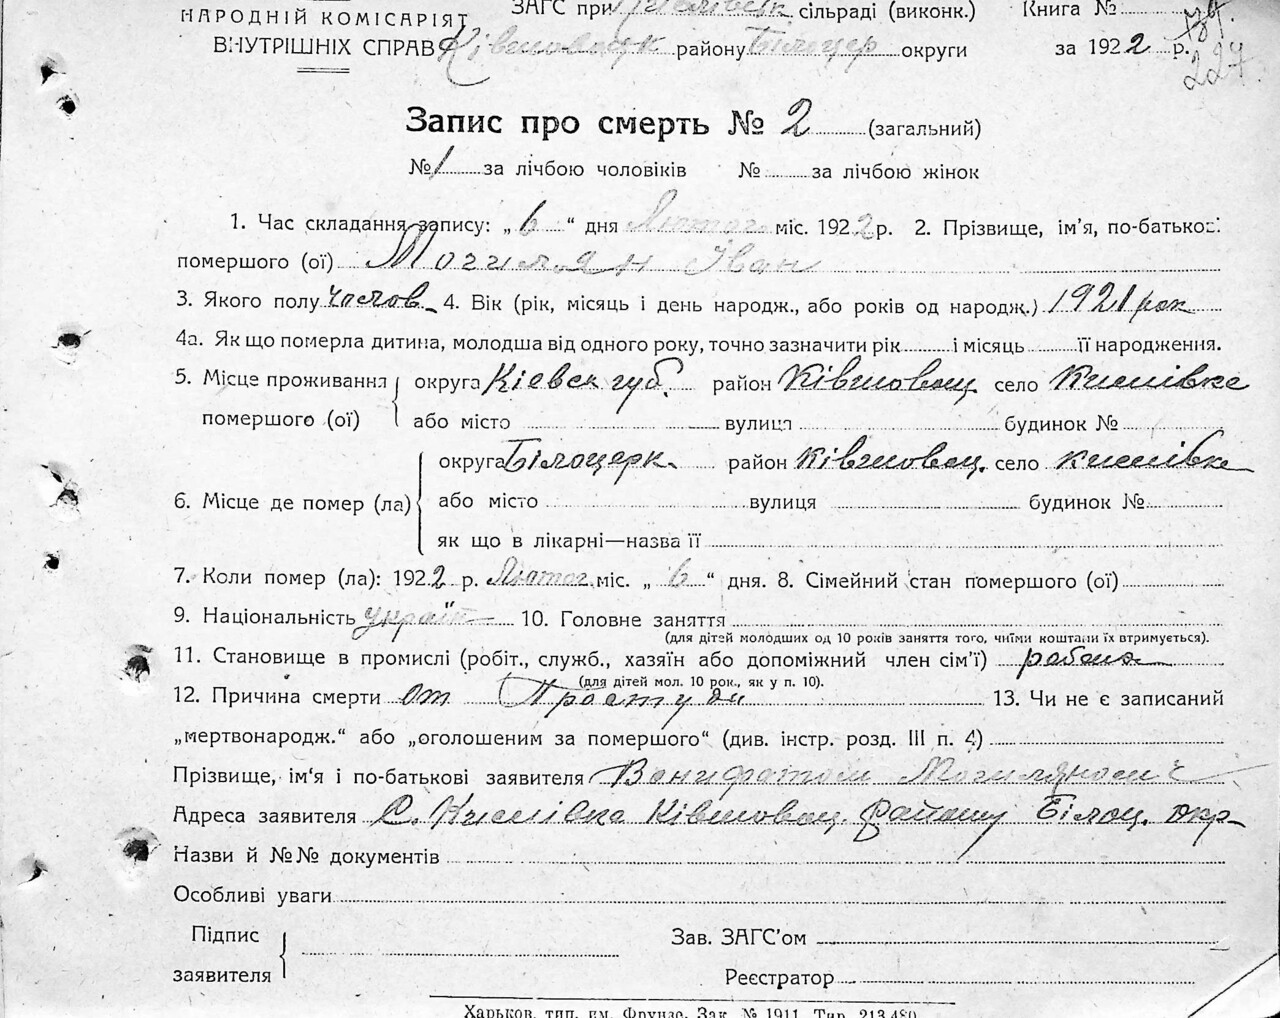 НАРОДНІЙ КОМІСАРІЯТ ЗАГС при сільраді (виконк.) Книга №
ВНУТРІШНІХ СПРАВ Ківшоватськ району Білоцер округи за 1922 р.
227
Запис про смерть № 2 (загальний)
№ 1 за лічбою чоловіків № за лічбою жінок
1. Час складання запису: „ 6 “ дня Лютог міс. 1922 р. 2. Прізвище, ім'я, по-батькові
помершого (ої) Могилян Іван
3. Якого полу чолов. 4. Вік (рік, місяць і день народж., або років од народж.) 1921 рок
4а. Як що померла дитина, молодша від одного року, точно зазначити рік і місяць її народження.
5. Місце проживання округа Кіевск губ. район Ківшовац село Кислівка
помершого (ої) або місто вулиця будинок №
округа Білоцерк. район Ківшовац. село Кислівка
6. Місце де помер (ла) або місто вулиця будинок №
як що в лікарні—назва її
7. Коли помер (ла): 1922 р. Лютог міс. „ 6 “ дня. 8. Сімейний стан помершого (ої)
9. Національність україн 10. Головне заняття
(для дітей молодших од 10 років заняття того, чиїми коштами їх втримується).
11. Становище в промислі (робіт., служб., хазяїн або допоміжний член сім'ї)
(для дітей мол. 10 рок., як у п. 10).
12. Причина смерти от Простуди 13. Чи не є записаний
„мертвонародж.“ або „оголошеним за помершого“ (див. інстр. розд. III п. 4)
Прізвище, ім'я і по-батькові заявителя
Адреса заявителя С. Кислівка Ківшовац. Району Білоц. Окр
Назви й №№ документів
Особливі уваги
Підпис Зав. ЗАГС'ом
заявителя Реєстратор
Харьков, тип. им. Фрунзе. Зак. № 1911. Тир. 213.480